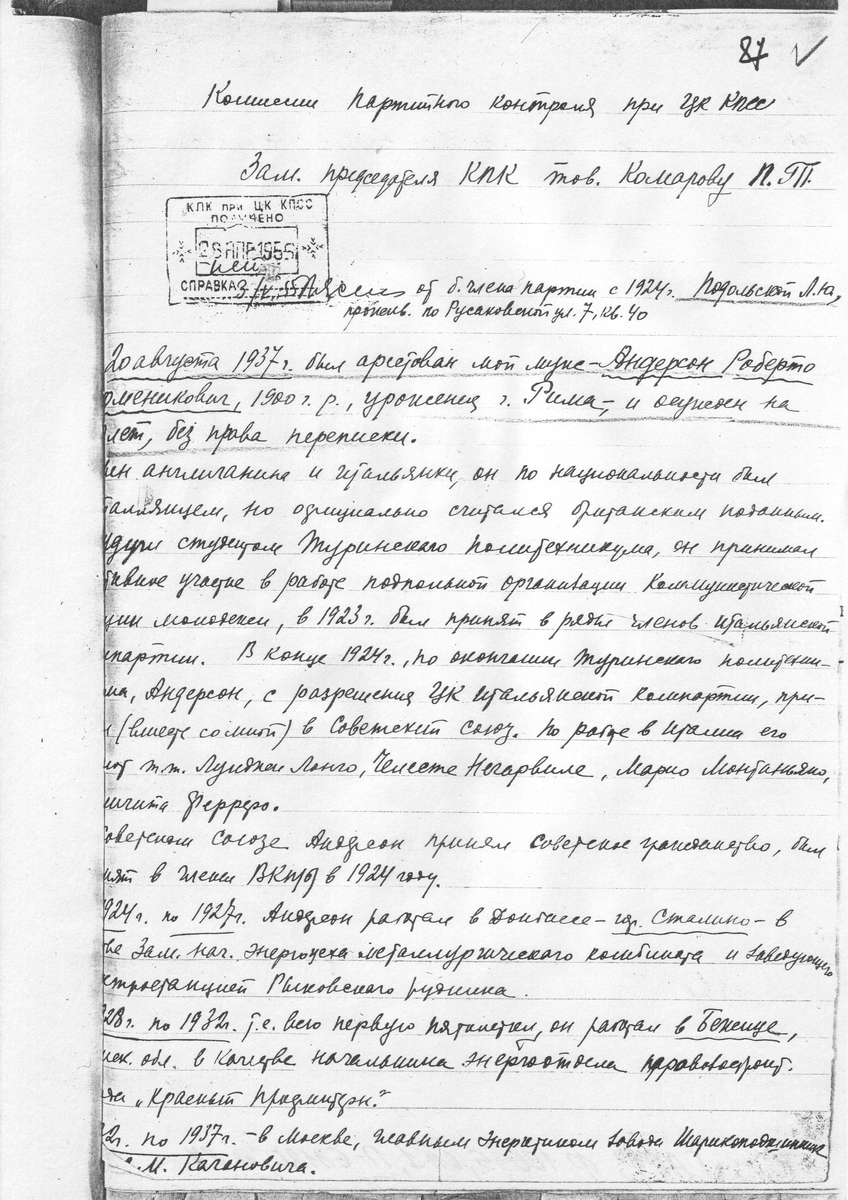 87
Комиссии Партийного контроля при ЦК КПСС
Зам. председателя КПК тов. Комарову П.Т.
КПК при ЦК КПСС
ПОЛУЧЕНО
28 АПР 1955
СПРАВКА
от б. члена партии с 1924 г. Подольской Л.Ю,
прожив. по Русаковской ул. 7, кв. 40
20 августа 1937 г. был арестован мой муж – Андерсон Роберто
оменикович, 1900 г. р., уроженец г. Рима, и осужден на
лет, без права переписки.
ын англичанина и итальянки, он по национальности был
тальянцем, но официально считался британским поданным.
удучи студентом Туринского политехникума, он принимал
тивное участие в работе подпольной организации Коммунистической
ции молодежи, в 1923 г. был принят в ряды членов итальянской
мпартии. В конце 1924 г., по окончании Туринского политехни-
ма, Андерсон, с разрешения ЦК итальянской компартии, при-
л (вместе со мной) в Советский Союз. По работе в Италии его
ют т.т. Луиджи Лонго, Челесте Негарвиле, Марио Монтаньяно,
Ферреро.
Советском Союзе Андерсон принял советское гражданство, был
нят в члены ВКП(б) в 1924 году.
1924 г. по 1927 г. Андерсон работал в Донбассе – гор. Сталино – в
ве Зам. нач. энергоцеха металлургического комбината и заведующего
ктростанцией Рыковского рудника.
928 г. по 1932 г. т.е. всю первую пятилетку, он работал в Бежице,
обл. в качестве начальника энергоотдела паровозостроит.
да „Красный Профинтерн."
32 г. по 1937 г. – в Москве, главным энергетиком завода Шарикоподшипник
.М. Кагановича.